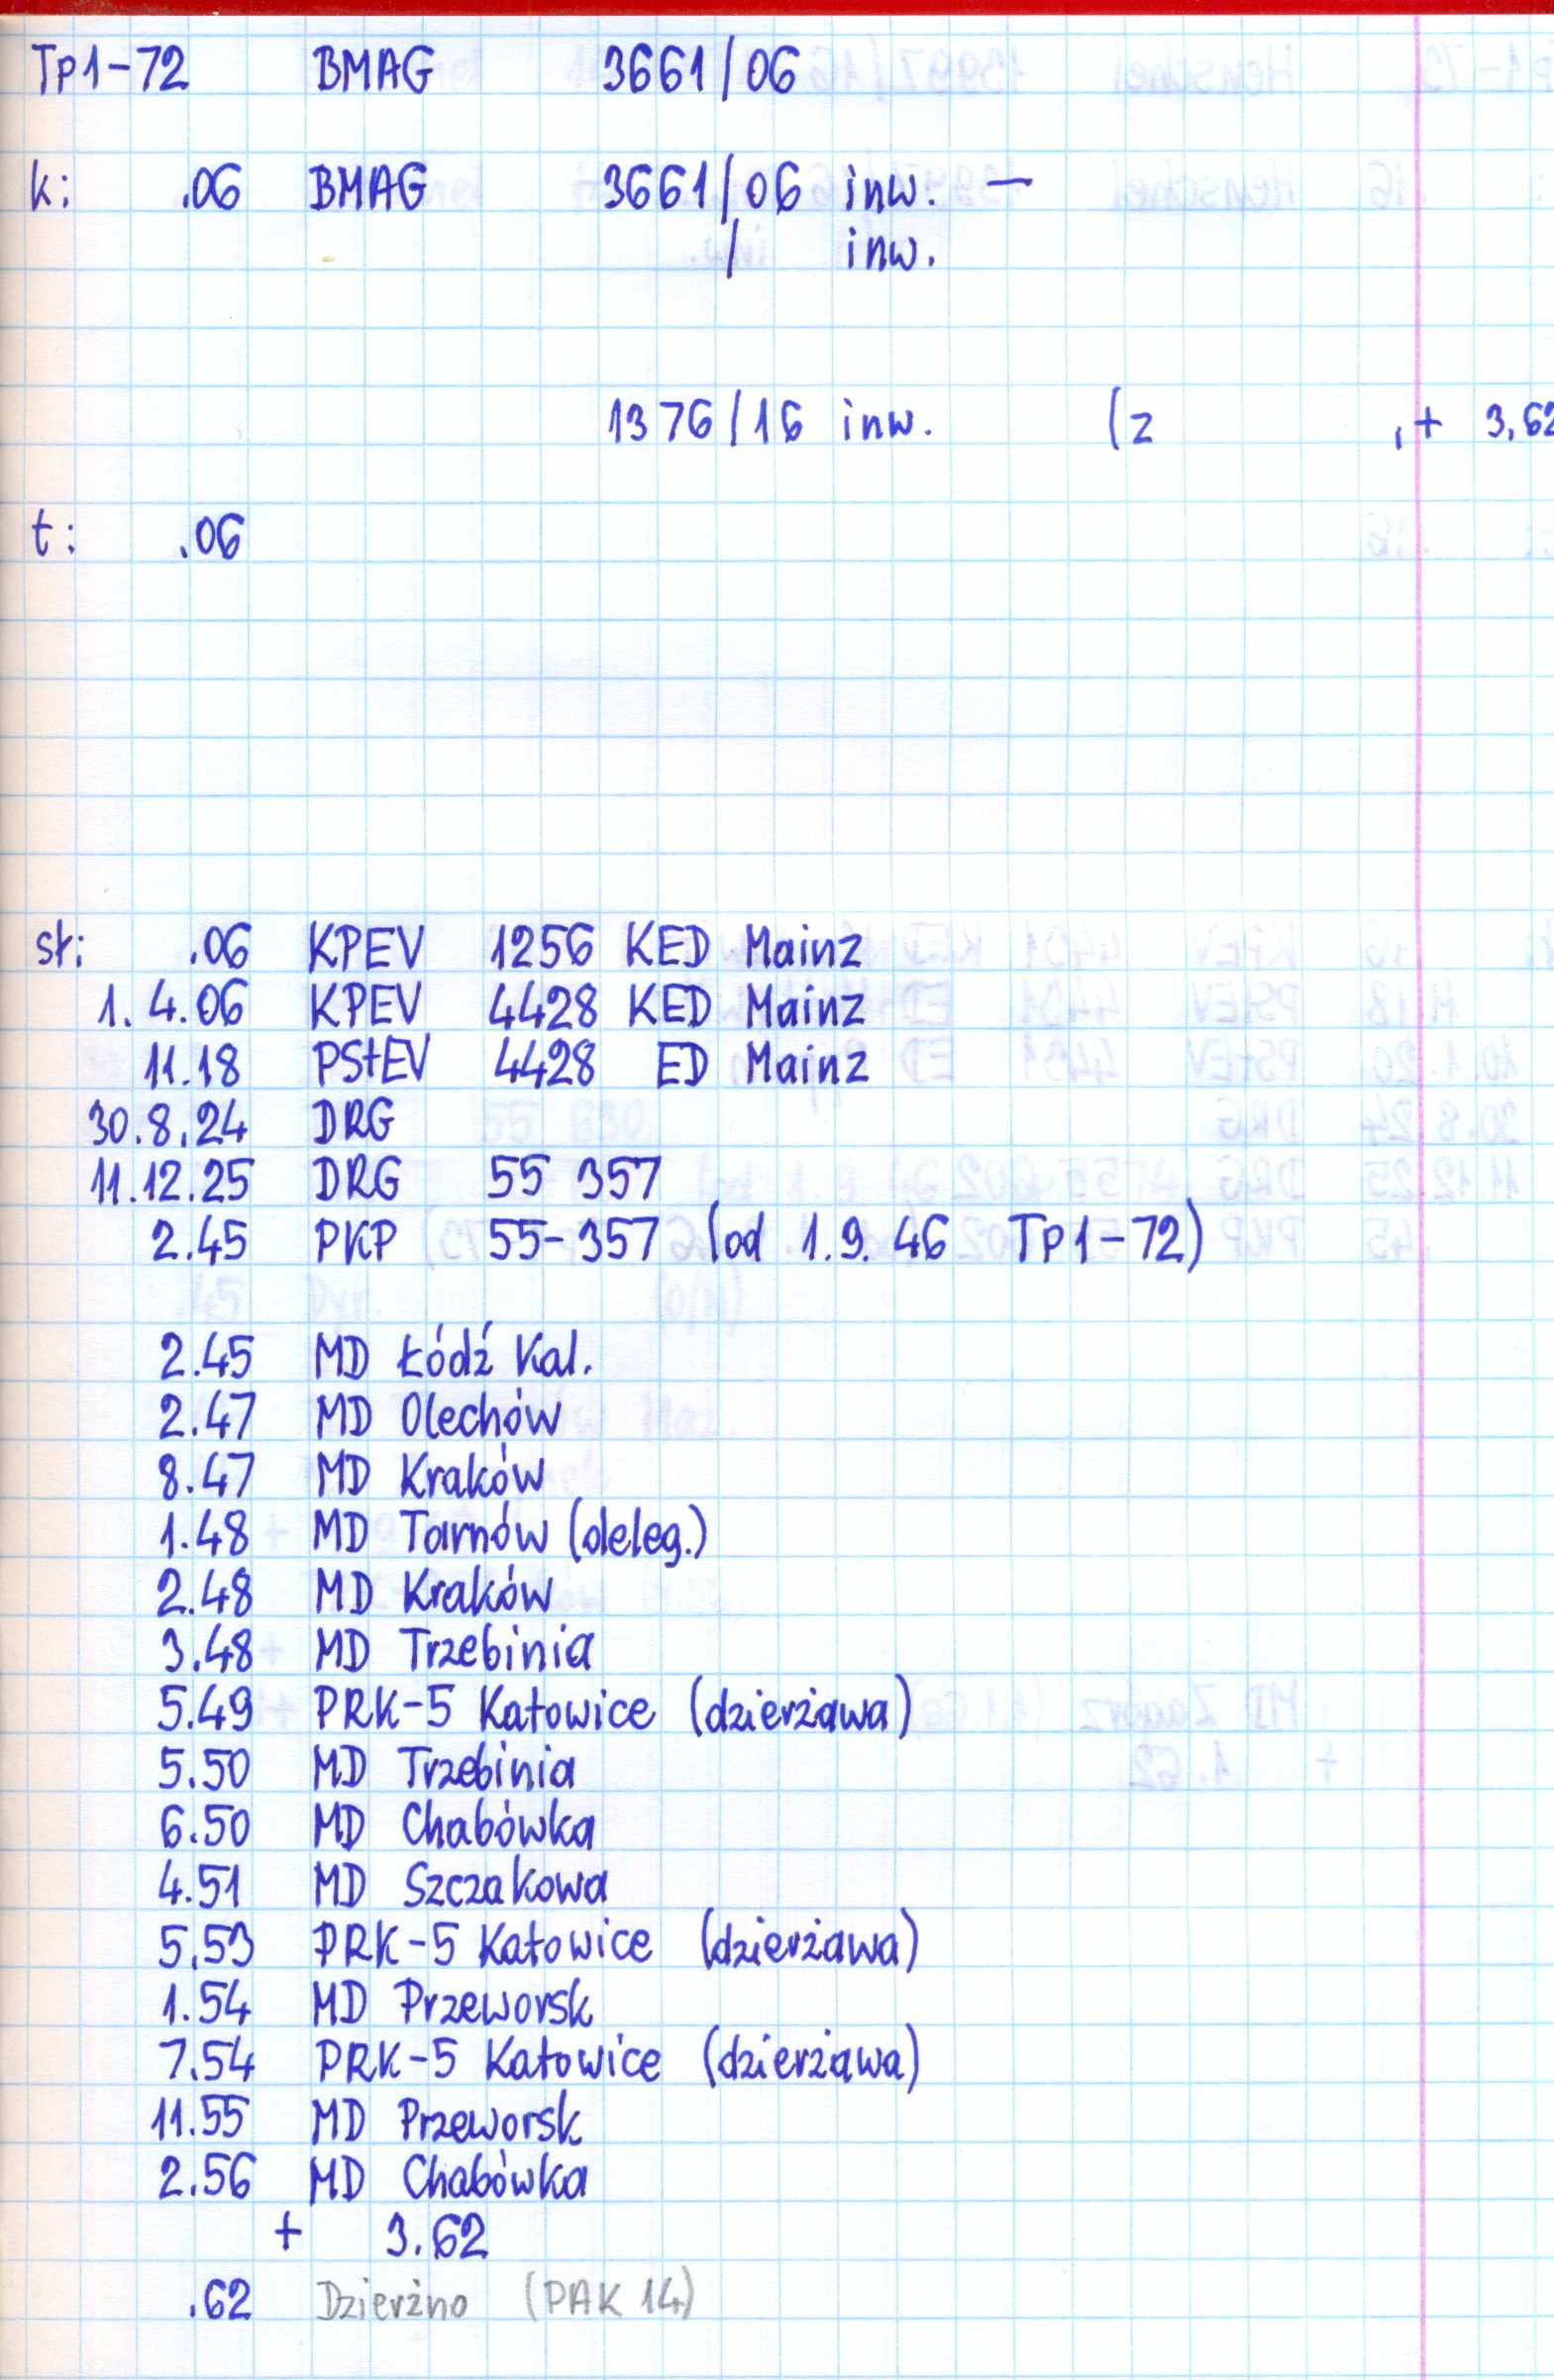 Tp1-72 BMAG 3661/06
k: .06 BMAG 3661/06 inw. —
/ inw.
1376/16 inw. (z , + 3.62
t: .06
sł: .06 KPEV 1256 KED Mainz
1.4.06 KPEV 4428 KED Mainz
11.18 PStEV 4428 ED Mainz
30.8.24 DRG
11.12.25 DRG 55 357
2.45 PKP 55-357 (od 1.9.46 Tp1-72)
2.45 MD Łódź Kal.
2.47 MD Olechów
8.47 MD Kraków
1.48 MD Tarnów (deleg.)
2.48 MD Kraków
3.48 MD Trzebinia
5.49 PRK-5 Katowice (dzierżawa)
5.50 MD Trzebinia
6.50 MD Chabówka
4.51 MD Szczakowa
5.53 PRK-5 Katowice (dzierżawa)
1.54 MD Przeworsk
7.54 PRK-5 Katowice (dzierżawa)
11.55 MD Przeworsk
2.56 MD Chabówka
+ 3.62
.62 Dzierżno (PAK 14)